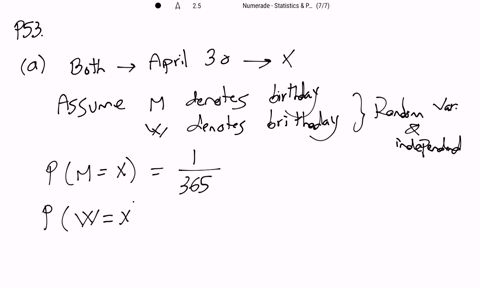 2.5 Numerade - Statistics & P... (7/7)
P53.
(a) Both → April 30 → X
Assume M denotes birthday
W denotes brithday } Random Var. & independend
P(M = X) = 1/365
P(W = X